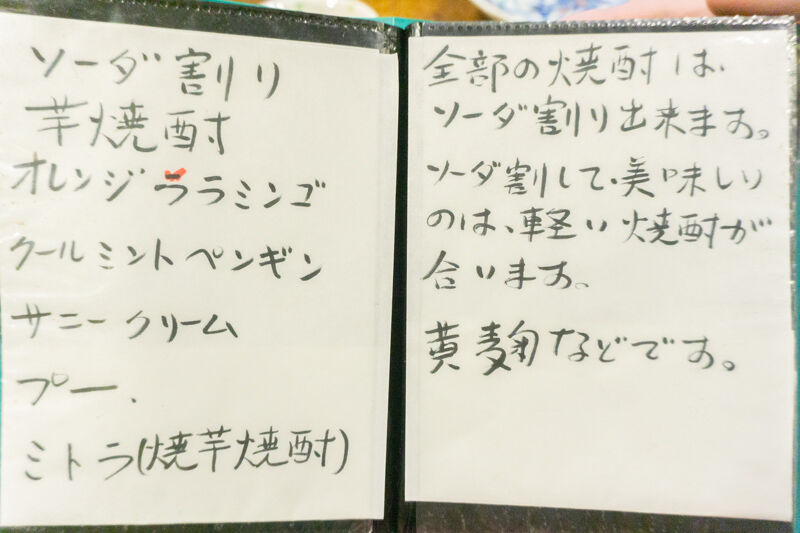 ソーダ割り
芋焼酎
オレンジ フラミンゴ
クールミントペンギン
サニークリーム
プー、
ミトラ(焼芋焼酎)
全部の焼酎は、
ソーダ割り出来ます。
ソーダ割して、美味しい
のは、軽い焼酎が
合います。
黄麹などです。